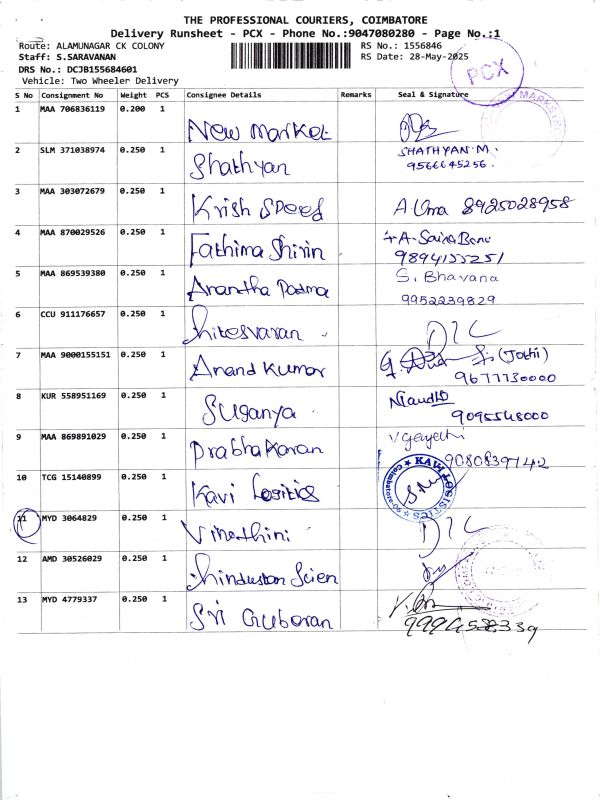 THE PROFESSIONAL COURIERS, COIMBATORE
Delivery Runsheet - PCX - Phone No.:9047080280 - Page No.:1
Route: ALAMUNAGAR CK COLONY
RS No.: 1556846
Staff: S.SARAVANAN
RS Date: 28-May-2025
DRS No.: DCJB155684601
Vehicle: Two Wheeler Delivery
PCX
S No Consignment No Weight PCS Consignee Details Remarks Seal & Signature
MARKET
1 MAA 706836119 0.200 1 New Market
2 SLM 371038974 0.250 1 Shathyan SHATHYAN M.
9566645256
3 MAA 303072679 0.250 1 Krish Speed A Uma 8925028958
4 MAA 870029526 0.250 1 Fathima Shirin A. Saira Banu
9894155251
5 MAA 869539380 0.250 1 Anantha Padma S. Bhavana
9952239829
6 CCU 911176657 0.250 1 hitesvaran D/C
7 MAA 9000155151 0.250 1 Anand Kumar (Jothi)
9677130000
8 KUR 558951169 0.250 1 Suganya
9095548000
9 MAA 869891029 0.250 1 Prabhakaran V Gayethri
9080839742
10 TCG 15140899 0.250 1 Kavi Logitics KAVI LOGISTICS
Coimbatore
11 MYD 3064829 0.250 1 Vinothini D/C
12 AMD 30526029 0.250 1 hindustan Scien
13 MYD 4779337 0.250 1 Sri Guberan
9994538339